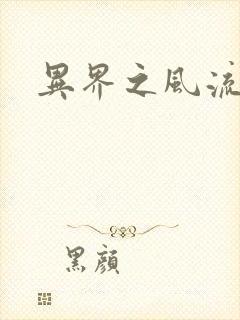 異界之風流
黑顏